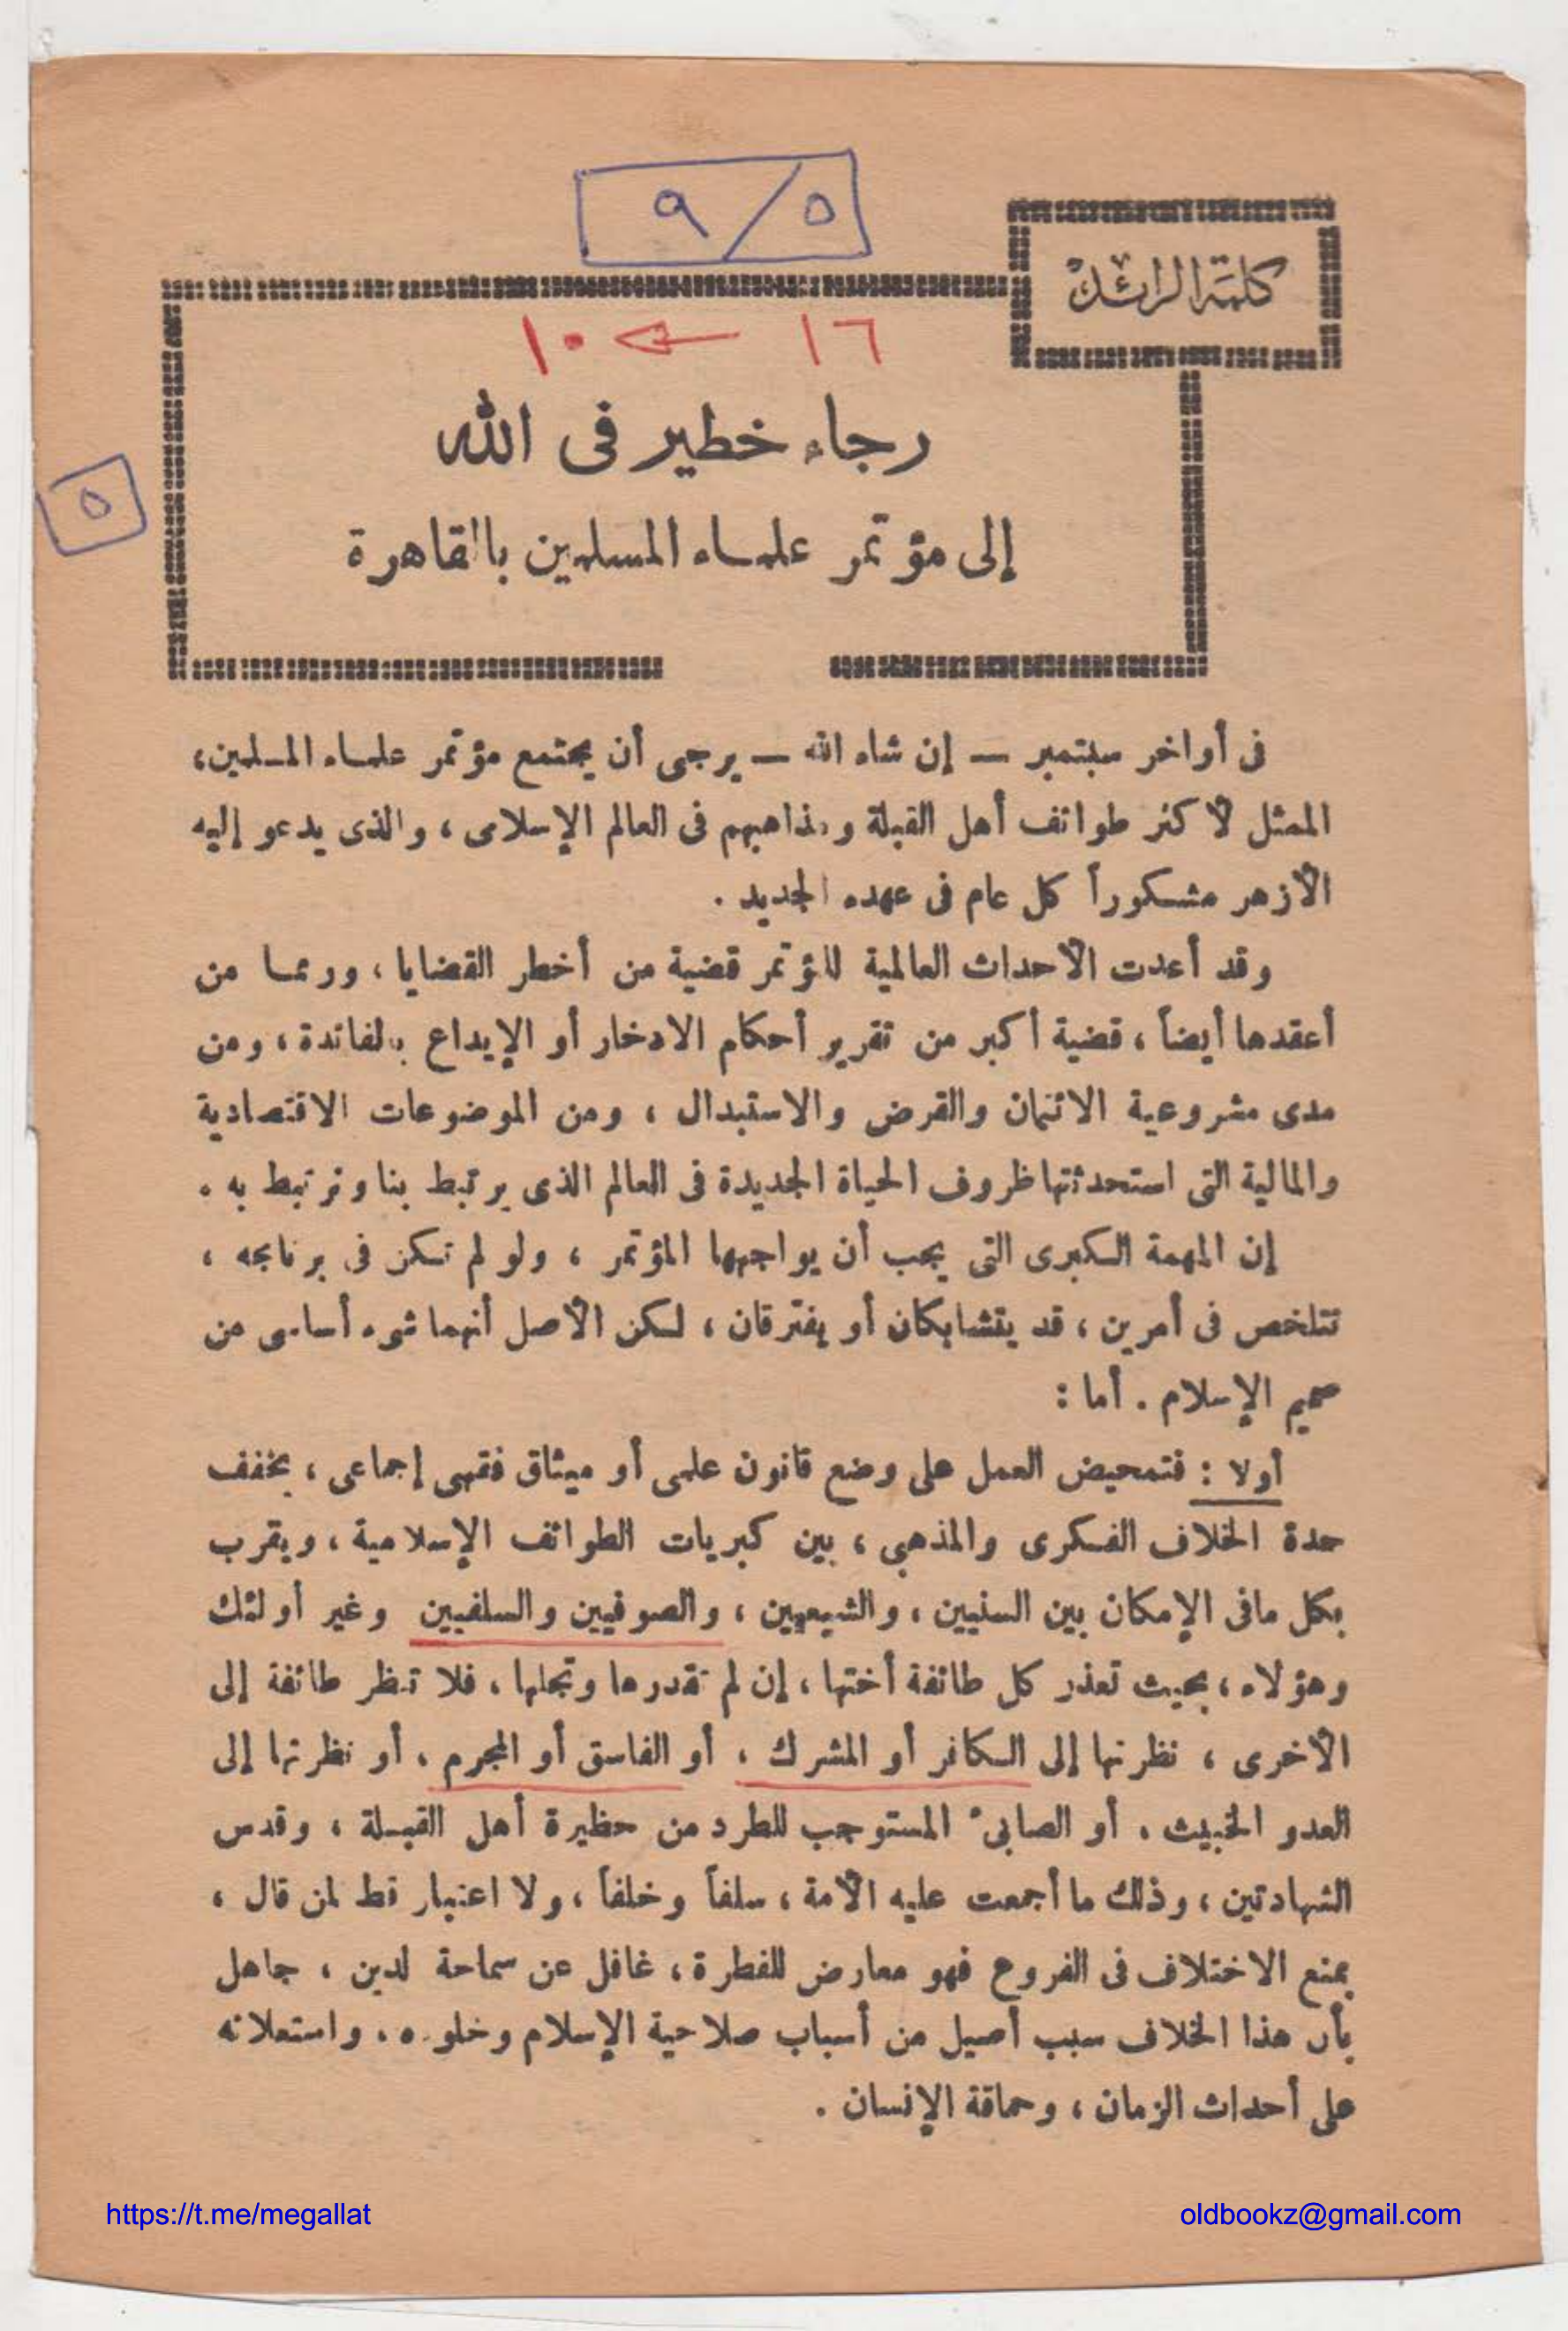 ٩/٥
كلمة الرائد
١٦ ← ١٠
رجاء خطير فى الله
٥
إلى مؤتمر علماء المسلمين بالقاهرة
فى أواخر سبتمبر — إن شاء الله — يرجى أن يجتمع مؤتمر علماء المسلمين،
الممثل لأكثر طوائف أهل القبلة ومذاهبهم فى العالم الإسلامى ، والذى يدعو إليه
الأزهر مشكوراً كل عام فى عهده الجديد .
وقد أعدت الأحداث العالمية للمؤتمر قضية من أخطر القضايا ، وربما من
أعقدها أيضاً ، قضية أكبر من تقرير أحكام الادخار أو الإيداع بالفائدة ، ومن
مدى مشروعية الائتمان والقرض والاستبدال ، ومن الموضوعات الاقتصادية
والمالية التى استحدثتها ظروف الحياة الجديدة فى العالم الذى يرتبط بنا ونرتبط به .
إن المهمة الكبرى التى يجب أن يواجهها المؤتمر ، ولو لم تكن فى برنامجه ،
تتلخص فى أمرين ، قد يتشابكان أو يفترقان ، لكن الأصل أنهما شىء أساسى من
صميم الإسلام . أما :
أولا : فتمحيض العمل على وضع قانون علمى أو ميثاق فقهى إجماعى ، يخفف
حدة الخلاف الفكرى والمذهبى ، بين كبريات الطوائف الإسلامية ، ويقرب
بكل مافى الإمكان بين السنيين ، والشيعيين ، والصوفيين والسلفيين وغير أولئك
وهؤلاء ، بحيث تعذر كل طائفة أختها ، إن لم تقدرها وتجلها ، فلا تنظر طائفة إلى
الأخرى ، نظرتها إلى الكافر أو المشرك ، أو الفاسق أو المجرم ، أو نظرتها إلى
العدو الخبيث ، أو الصابئ المستوجب للطرد من حظيرة أهل القبلة ، وقدس
الشهادتين ، وذلك ما أجمعت عليه الأمة ، سلفاً وخلفاً ، ولا اعتبار قط لمن قال ،
بمنع الاختلاف فى الفروع فهو معارض للفطرة ، غافل عن سماحة لدين ، جاهل
بأن هذا الخلاف سبب أصيل من أسباب صلاحية الإسلام وخلوده ، واستعلائه
على أحداث الزمان ، وحماقة الإنسان .
https://t.me/megallat
oldbookz@gmail.com